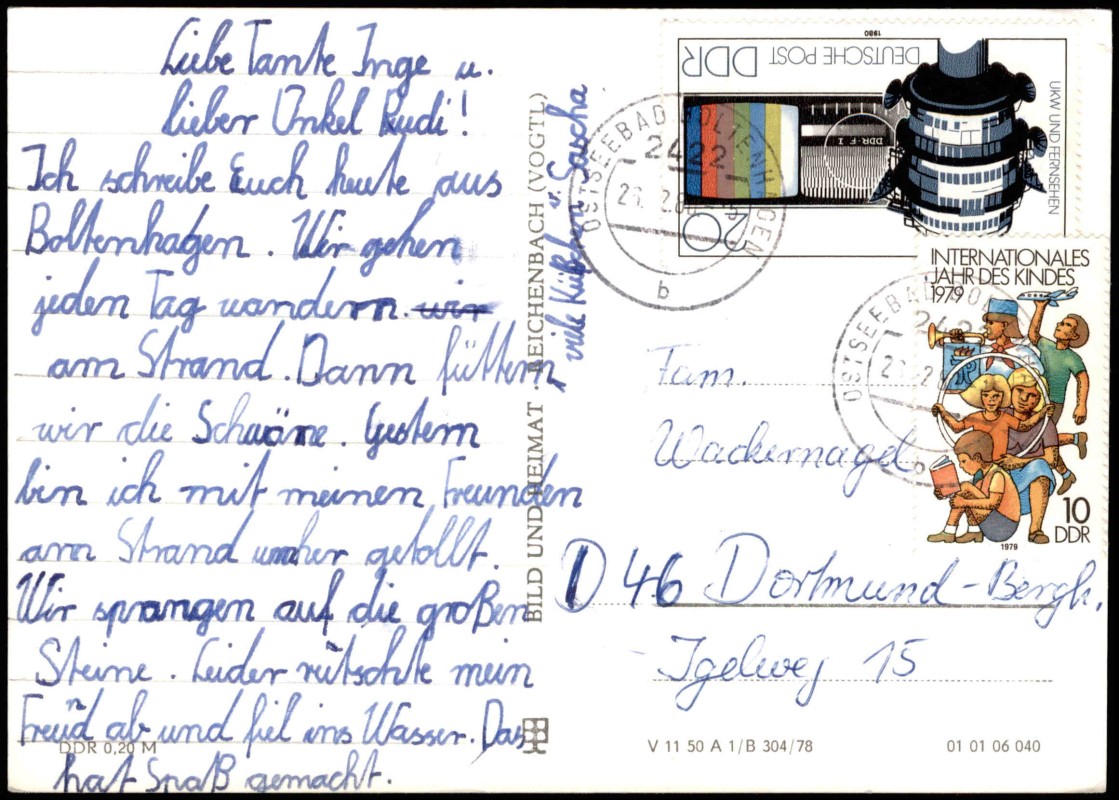 Liebe Tante Inge u.
lieber Onkel Rudi!
Ich schreibe Euch heute aus
Boltenhagen. Wir gehen
jeden Tag wandern. wir
am Strand. Dann füttern
wir die Schwäne. Gestern
bin ich mit meinen Freunden
am Strand umher getollt.
Wir sprangen auf die großen
Steine. Leider rutschte mein
Freund ab und fiel ins Wasser. Das
hat Spaß gemacht.
viele Küße von Sascha
DDR 0,20 M
BILD UND HEIMAT · REICHENBACH (VOGTL)
1980
DEUTSCHE POST DDR
UKW UND FERNSEHEN
DDR-F 1
20
OSTSEEBAD BOLTENHAGEN
2422
b
INTERNATIONALES
JAHR DES KINDES
1979
10
DDR
1979
OSTSEEBAD BO
242
b
Fam.
Wackernagel
D 46 Dortmund-Bergh.
Igelweg 15
V 11 50 A 1/B 304/78
01 01 06 040